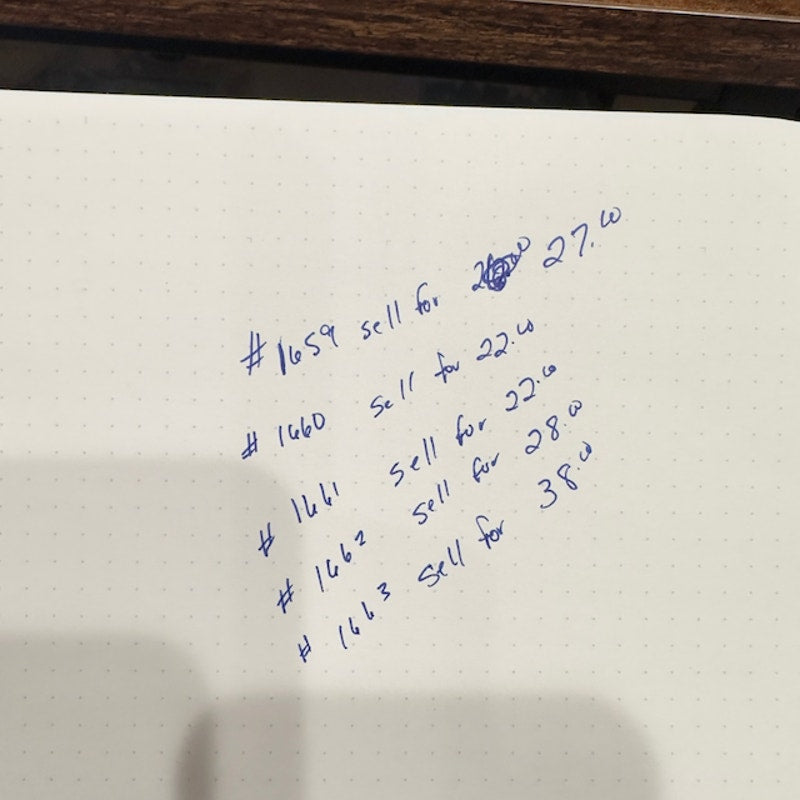 #1659 sell for 27.00
# 1660 sell for 22.00
# 1661 sell for 22.00
# 1662 sell for 28.00
# 1663 sell for 38.00